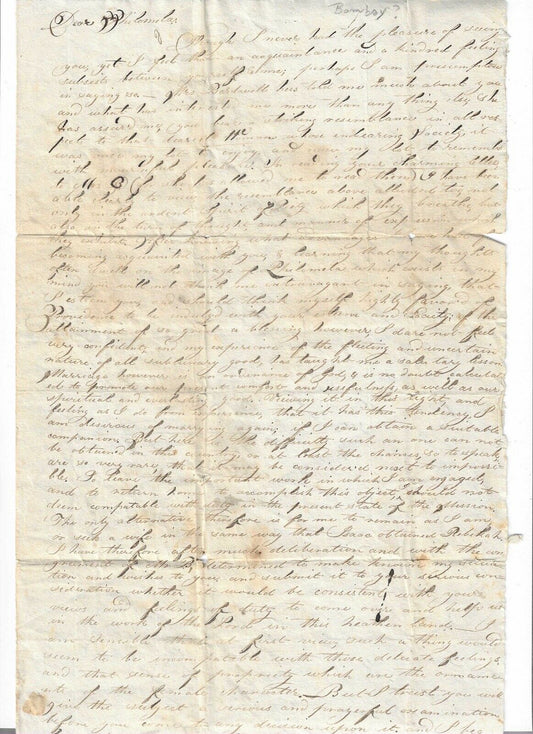 Bombay?
Dear Philomela,
Though I never had the pleasure of seeing
you, yet I feel that an acquaintance and a kindred feeling
subsists between you and me, perhaps I am presumptuous
in saying so — Mrs has told me much about you
and what has interested me more than any thing else, she
has assured me, you bear a striking resemblance in all res-
pects to that dear woman whose endearing society, it
was once my lot to enjoy, and now my lot to remember
with mournful The reading of your charming letters
to allowed me I have been
able to view the resemblance above alluded to, not
only in the ardent spirit of piety which they breathe, but
also in the of thought and manner of expression which
they exhibit.
becoming acquainted with you, & learning that my thoughts
often dwell on the image of Philomela which exists in my
mind you will not think me extravagant in saying that
I esteem you, and should think myself highly favored of
Providence to be united with you
attainment of so great a blessing however, I dare not feel
very confident, as my experience of the fleeting and uncertain
nature of all earthly good, has taught me a salutary lesson
Marriage however is the ordinance of God, & is no doubt calculat-
ed to promote our present comfort and usefulness, as well as our
spiritual and everlasting good. Viewing it in this light, and
feeling as I do from experience, that it has this tendency, I
am desirous of marrying again, if I can obtain a suitable
companion. But here is the difficulty, such an one can not
be obtained in this country, or at least the chances, so to speak,
are so very rare, that it may be considered next to impossi-
ble. To leave the important work in which I am engaged,
and to return home to accomplish this object, I should not
deem compatible with duty in the present state of the mission.
The only alternative therefore is for me to remain as I am,
or seek a wife in the same way that Isaac obtained Rebekah.
I have therefore after much deliberation and with the con-
currence of the determined to make known my situa-
tion and wishes to you, and submit it to your serious con-
sideration whether it would be consistent with your
views and feelings of duty to come over and help us
in the work of the Lord in this heathen land. I
am sensible that at first view, such a thing would
seem to be incompatible with those delicate feelings,
and that sense of propriety which are the ornaments
of the female character. But I trust you will
give the subject a serious and prayerful examination
before you come to any decision upon it, and I beg